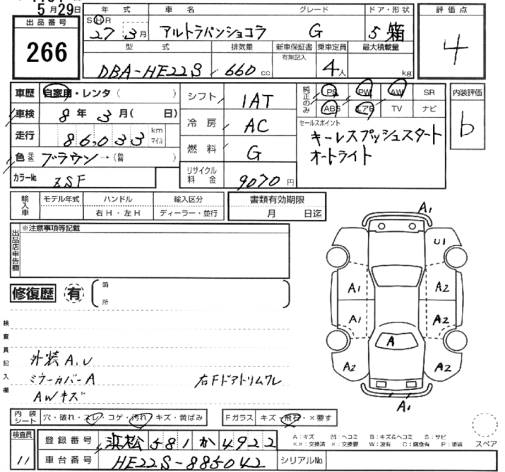 5月29日
出品番号
266
年式
車名
グレード
ドア・形状
S H R 27年3月 アルトラパンショコラ G 5 箱
型式
排気量
新車保証書
有無記入
乗車定員
最大積載量
DBA-HE22S 660cc 4人 kg
評価点
4
車歴 自家用・レンタ( )
車検 8年3月( 日)
走行 86,033 km マイル
色 ブラウン→(替 )
カラーNo. ZSF
シフト 1AT
冷房 AC
燃料 G
リサイクル料金 9070円
純正のみ
PS PW AW SR
ABS エアB TV ナビ
セールスポイント
キーレスプッシュスタート
オートライト
内装評価
b
輸入車
モデル年式
ハンドル
右H・左H
輸入区分
ディーラー・並行
書類有効期限
月 日迄
出品店申告欄
※注意事項等記載
修復歴 有 箇所
検査員記入欄
外装A,U
ミラーカバーA
AWキズ
右Fドアトリムワレ
A1
U1
A1
A2
A1
A2
A
A2
A1
内装シート
穴・破れ・スレ・コゲ・汚れ・キズ・黄ばみ
Fガラス キズ・飛石・×要す
スペア
検査員
11
登録番号 浜松581か4922
車台番号 HE22S-885042
シリアルNo.
A:キズ M:ヘコミ B:キズ&ヘコミ S:サビ
××:交換済 ×:要交換 W:波有 C:腐食有 P:塗装